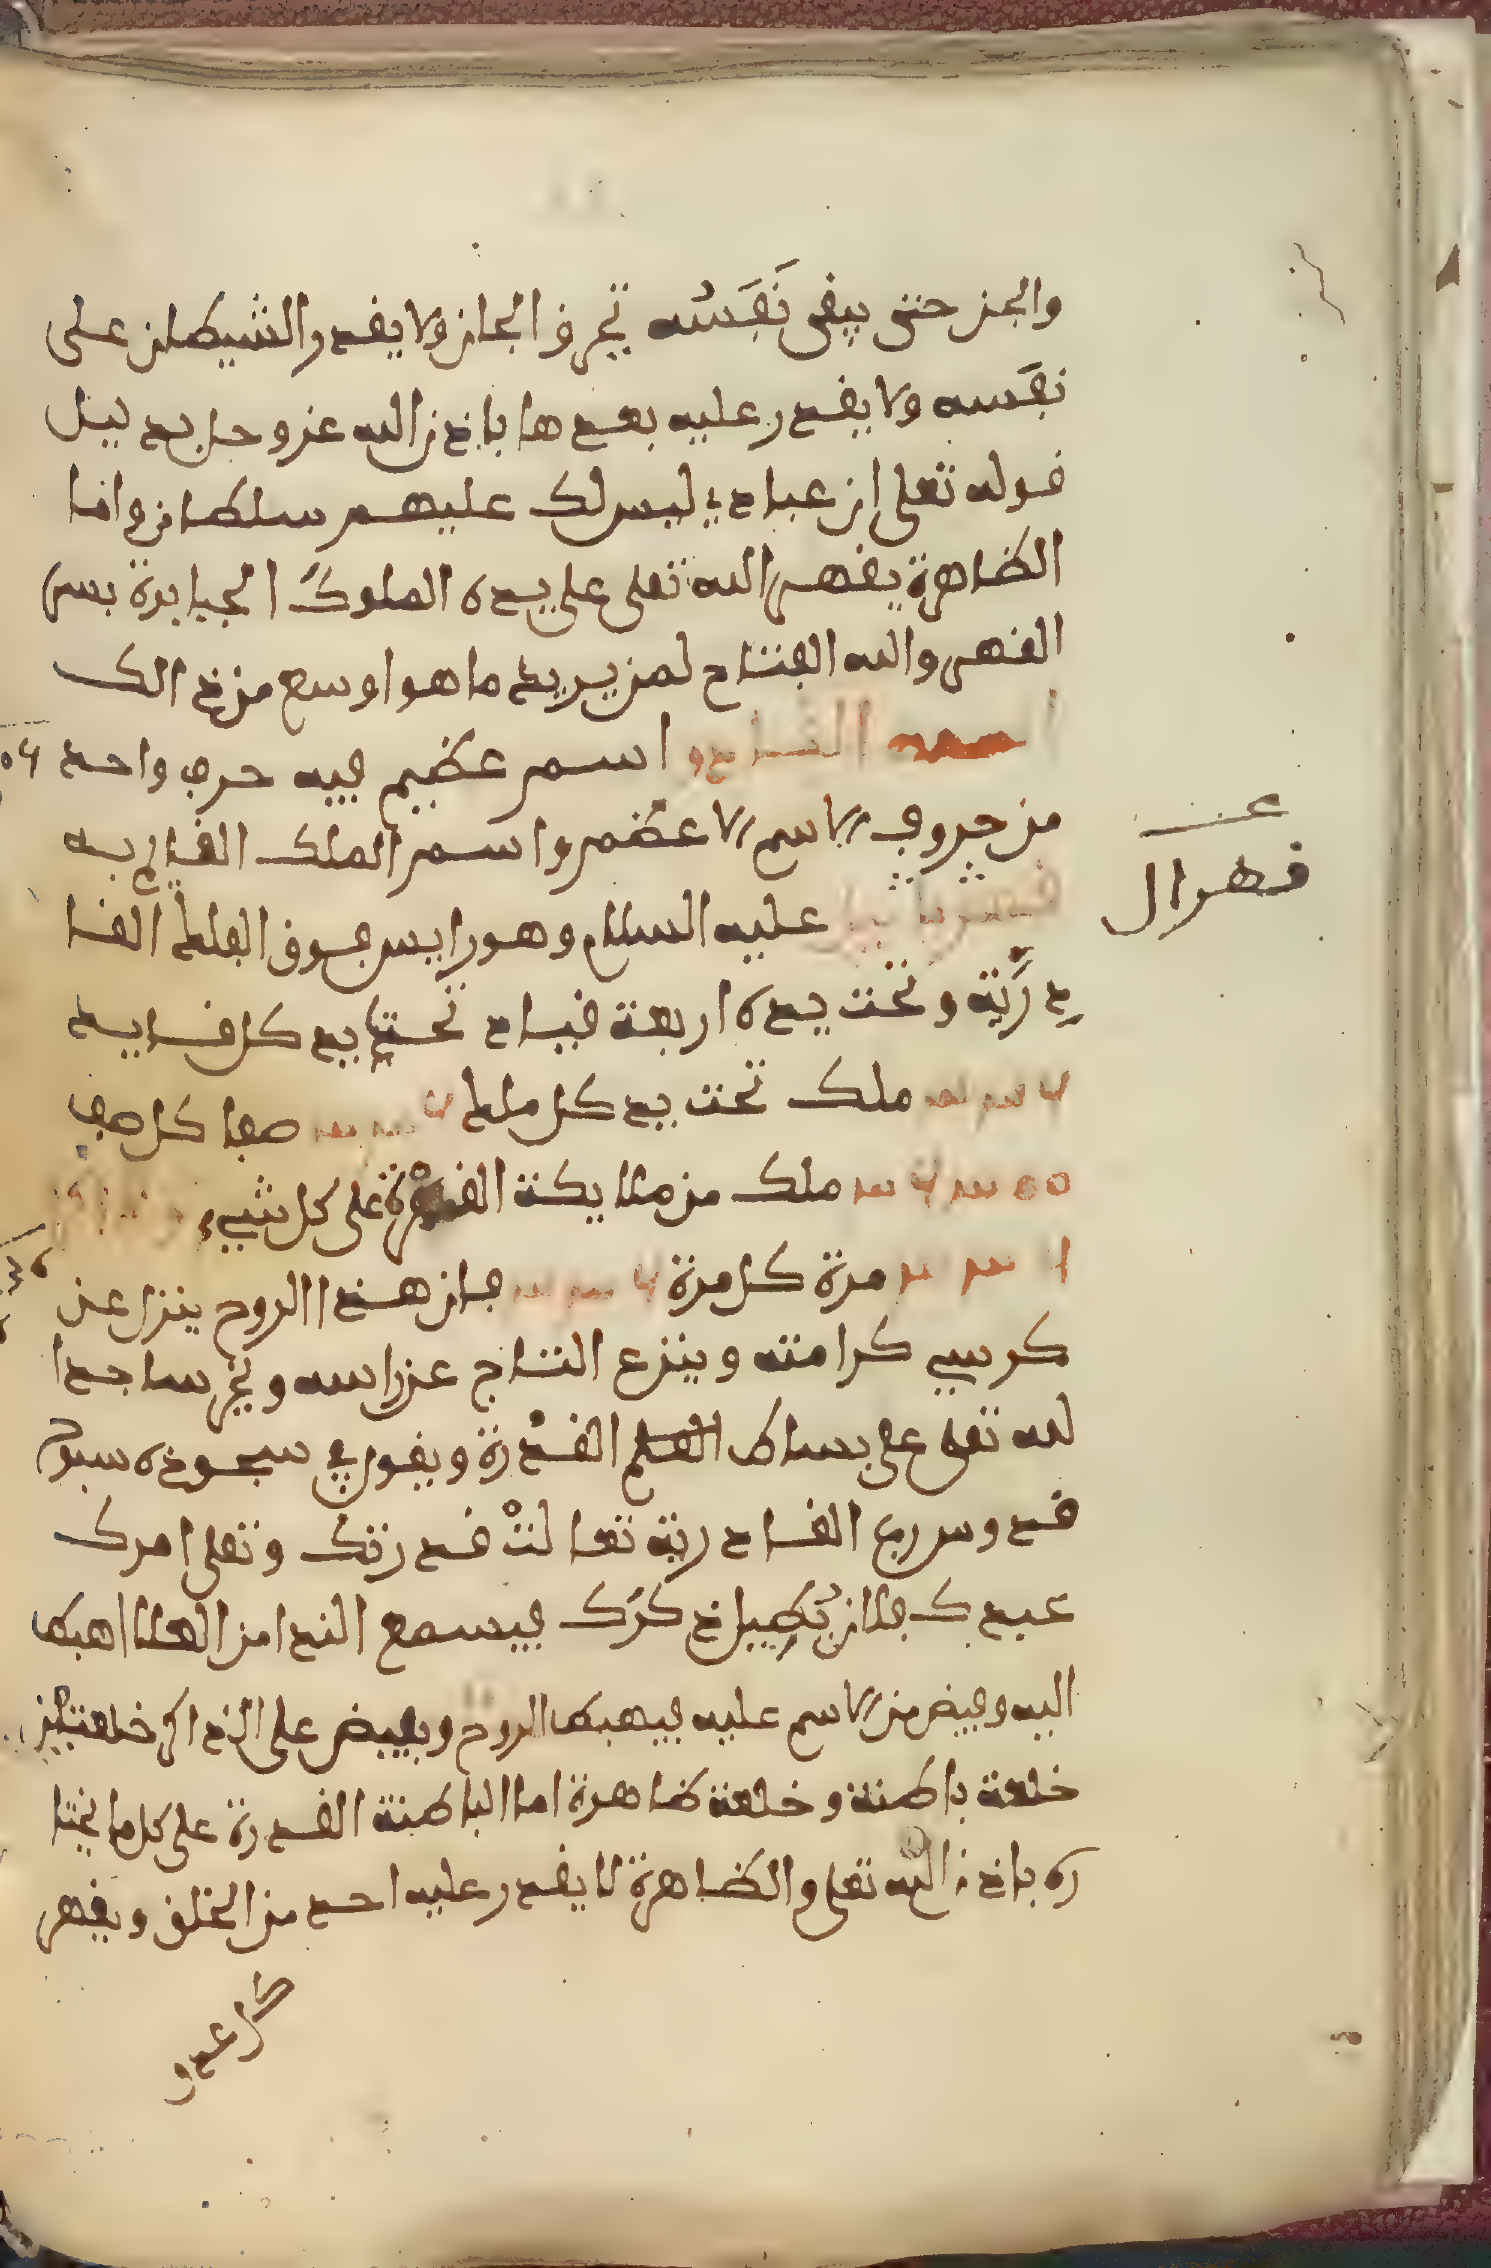 والجن حتى يبقى نَفَسُه تحرق الجان ولا يقدر الشيطان على
نفَسه ولا يقدر عليه بعدها باذن الله عز وجل بدليل
قوله تعلى ان عبادي ليس لك عليهم سلطان واما
الظاهرة يقهر الله تعلى على يده الملوك الجبابرة بسر
القهر والله الفتاح لمن يريد ما هو اوسع من ذالك
اسمه القادر اسم عظيم فيه حرف واحد
من حروف الاسم الاعظم واسم الملك القايم به
عليه السلام وهو رايس جوف الفلك القا
درية وتحت يده اربعة قياد تحت يد كل قايد
ملك تحت يد كل ملك صفا كل صف
ملك من ملايكة القدرة على كل شيء
مرة كل مرة فان هذا الروح ينزل عن
كرسي كرامته وينزع التاج عن راسه ويخر ساجدا
لله تعلى على بساط القدرة ويقول في سجوده سبوح
قدوس رب القادرية تعالتْ قدرتك وتعلى امرك
عبدك فلان يُطيل ذكرك فيسمع الندا من العلا اهبط
اليه وفيض من الاسم عليه فيهبط الروح ويفيض على الذاكر خلعتين
خلعة باطنة وخلعة ظاهرة اما الباطنة القدرة على كل ما يختا
ره باذن الله تعلى والظاهرة لا يقدر عليه احد من الخلق ويقهر
كل عدو
عـ
قهرال